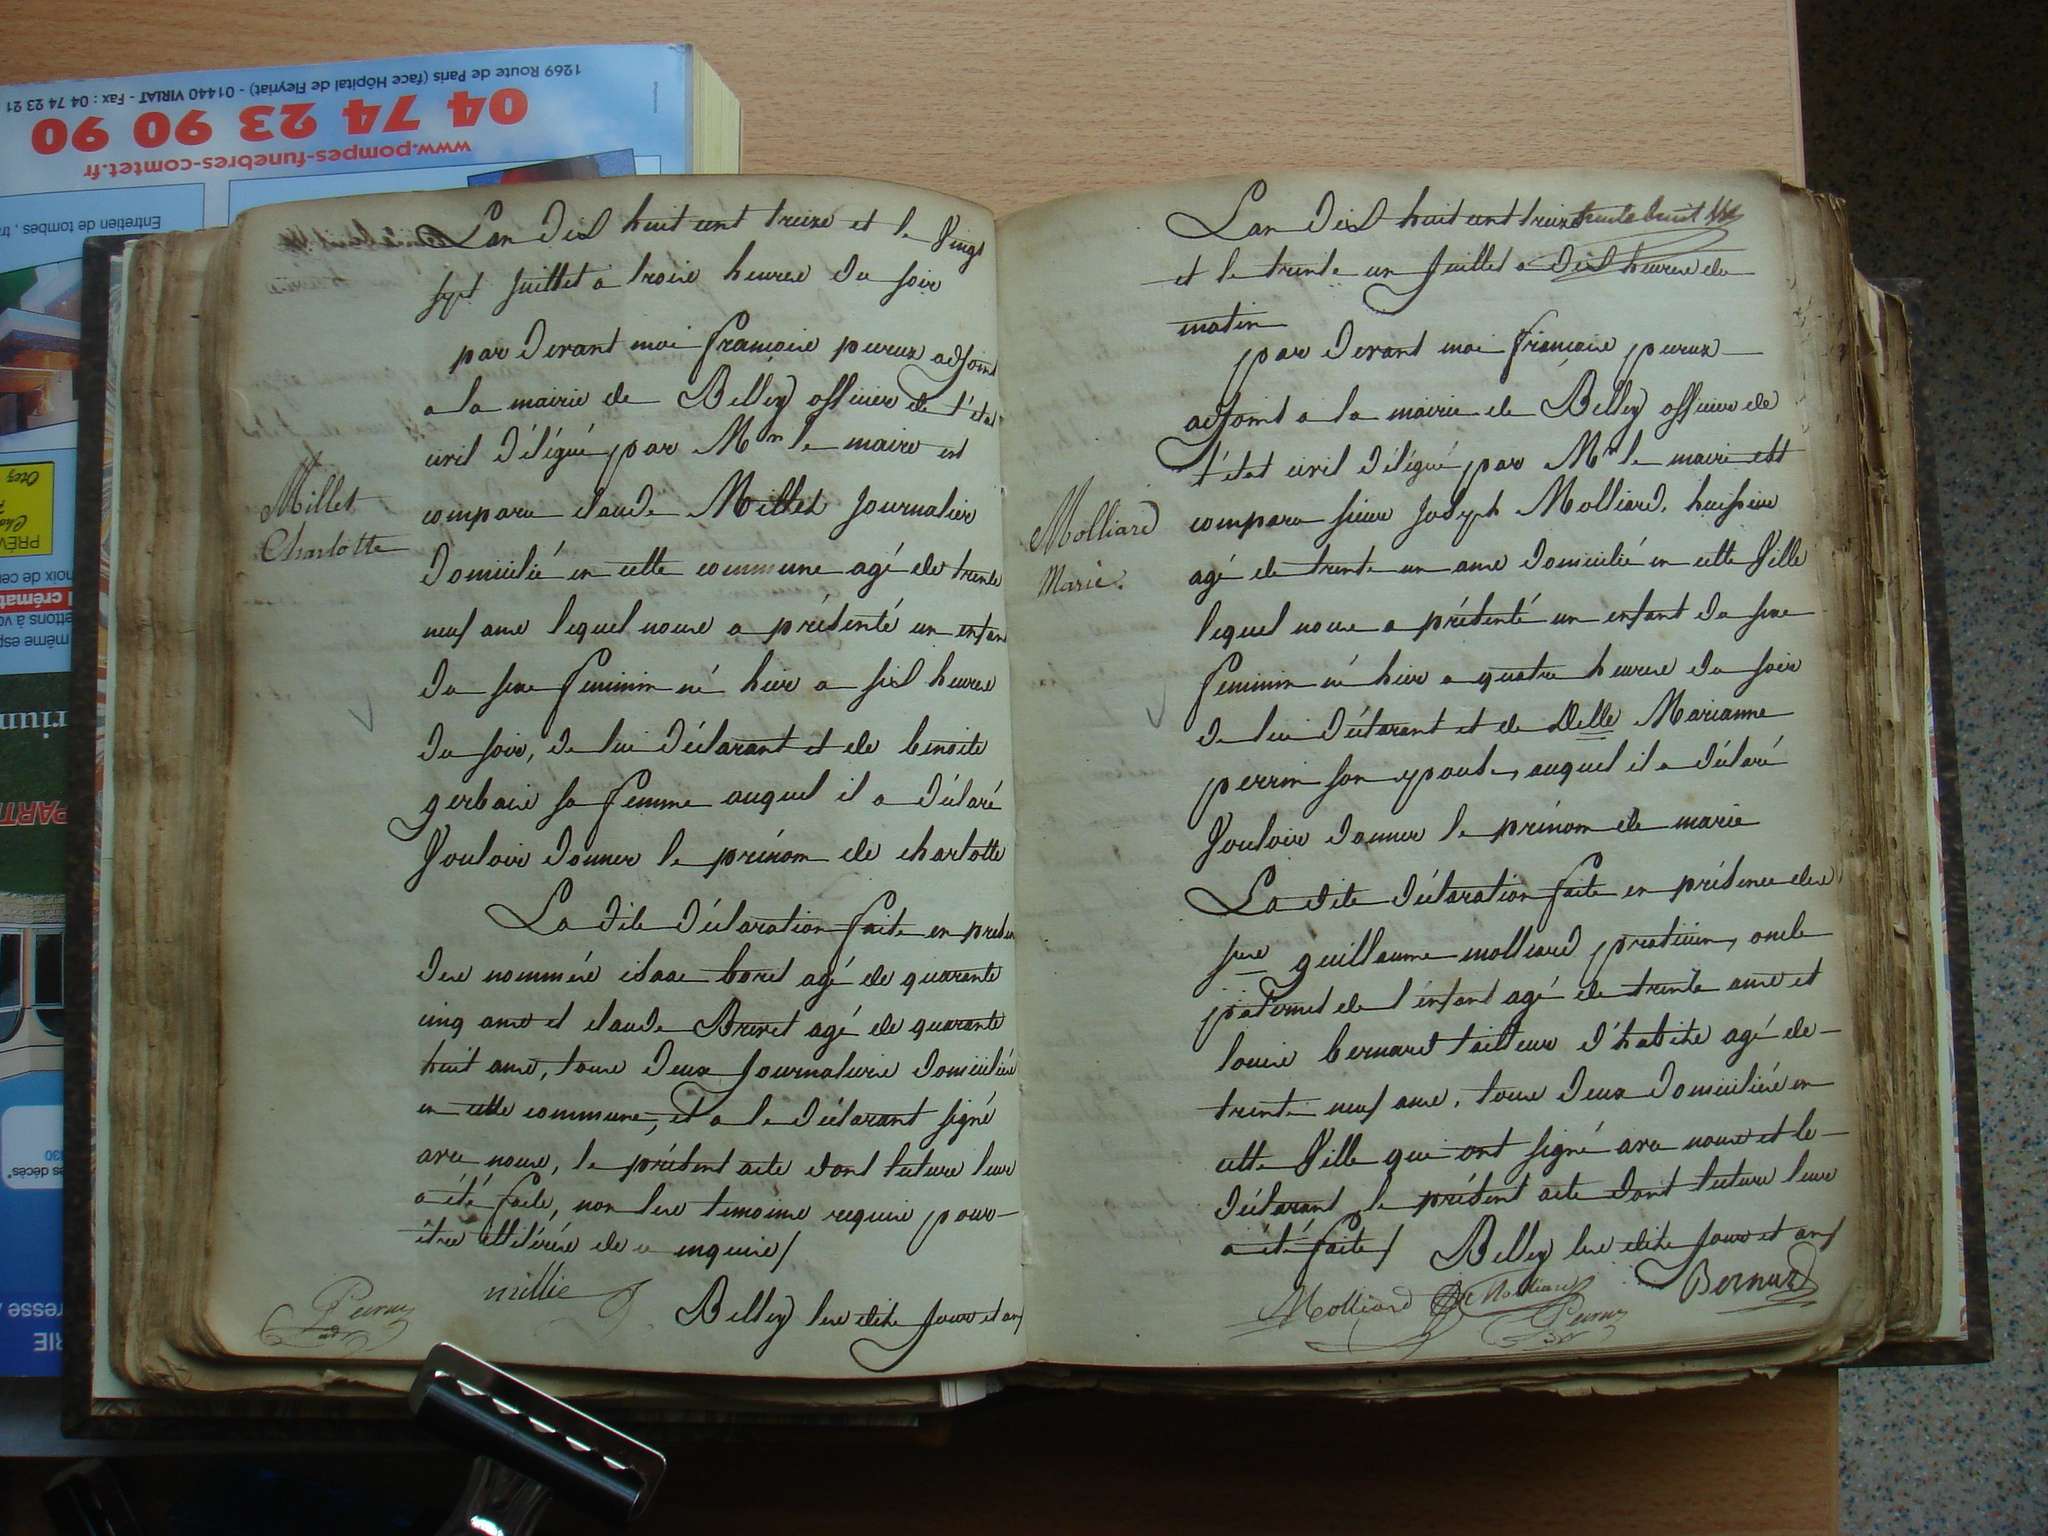 1269 Route de Paris (face Hôpital de Fleyriat) - 01440 VIRIAT - Fax : 04 74 23 21
04 74 23 90 90
www.pompes-funebres-comtet.fr
Entretien de tombes,
PRÉV
Millet
Charlotte
L'an dix huit cent treize et le vingt
sept juillet a trois heures du soir
par devant moi françois peurux adjoint
a la mairie de Belley officier de l'état
civil délégué par Mr le maire est
comparu claude Millet journalier
domicilié en cette commune agé de trente
neuf ans lequel nous a présenté un enfan
du sexe feminin né hier a six heures
du soir, de lui déclarant et de benoite
gerbais sa femme auquel il a déclaré
vouloir donner le prénom de charlotte
La dite déclaration faite en présen
des nommés isaac boret agé de quarante
cinq ans et claude Brevet agé de quarante
huit ans, tous deux journaliers domiciliés
en cette commune, et a le déclarant signé
avec nous, le présent acte dont lecture leur
a été faite, non les temoins requis pour
être illitérés de ce enquis /
millie
Belley les dits jour et an /
Molliard
Marie.
trente huit
L'an dix huit cent treize
et le trente un juillet a dix heures du
matin
par devant moi françois peurux
adjoint a la mairie de Belley officier de
l'état civil délégué par Mr le maire est
comparu sieur joseph Molliard, huissier
agé de trente un ans domicilié en cette ville
lequel nous a présenté un enfant du sexe
feminin né hier a quatre heures du soir
de lui déclarant et de Delle Marianne
perrin son epouse, auquel il a déclaré
vouloir donner le prénom de marie
La dite déclaration faite en présence des
srs guillaume molliard praticien, oncle
paternel de l'enfant agé de trente ans et
louis bernard tailleur d'habits agé de
trente neuf ans, tous deux domiciliés en
cette ville qui ont signé avec nous et le
déclarant le présent acte dont lecture leur
a été faite / Belley les dits jour et an /
Molliard Molliard Bernard